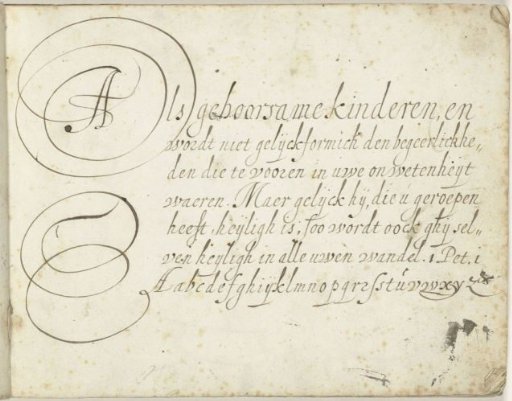 Als gehoorsame kinderen, en
wordt niet gelijckformich den begeerlickhe,,
den die te vooren in uwe onwetenheyt
waeren. Maer gelyck hy, die u geroepen
heeft, heyligh is; soo wordt oock ghy sel,,
ven heyligh in alle uwen wandel. 1 Pet. 1
Aabcdefghijklmnopqrzsstuvwxyz